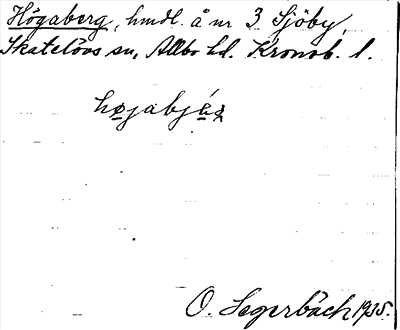 Högaberg, hmdl. å nr 3 Sjöby,
Skatelövs sn, Allbo hd. Kronob. l.
O. Segerbäck 1935.